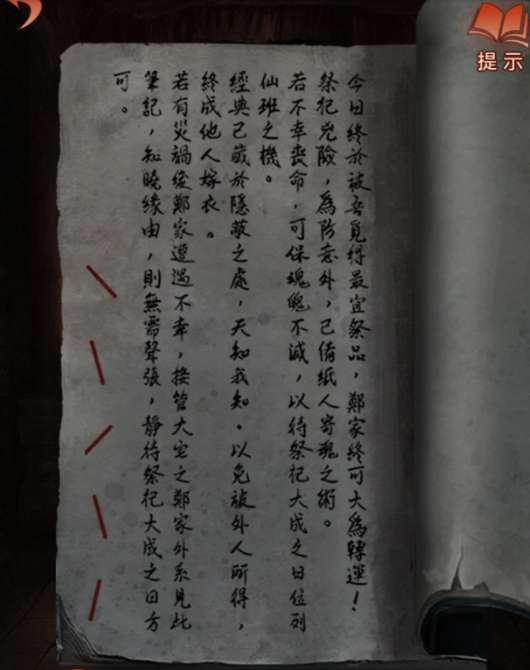 提示
今日終於被吾覓得最宜祭品，鄭家終可大為轉運！
祭祀兇險，為防意外，已備紙人寄魂之術。
若不幸喪命，可保魂魄不滅，以待祭祀大成之日位列
仙班之機。
經典已藏於隱蔽之處，天知我知。以免被外人所得，
終成他人嫁衣。
若有災禍後鄭家遭遇不幸，接管大宅之鄭家外系見此
筆記，知曉緣由，則無需聲張，靜待祭祀大成之日方
可。